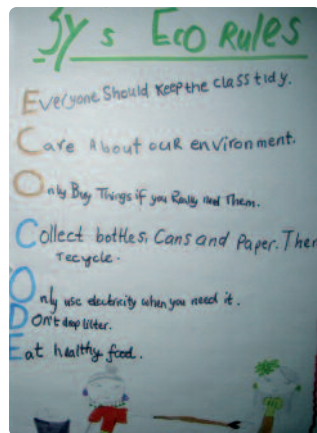 Jy s Eco Rules
Everyone Should Keep the class tidy.
Care About our environment.
Only Buy Things if you Really need Them.
Collect bottles, Cans and Paper. Then
recycle.
Only use electricity when you need it.
Don't drop litter.
Eat healthy food.